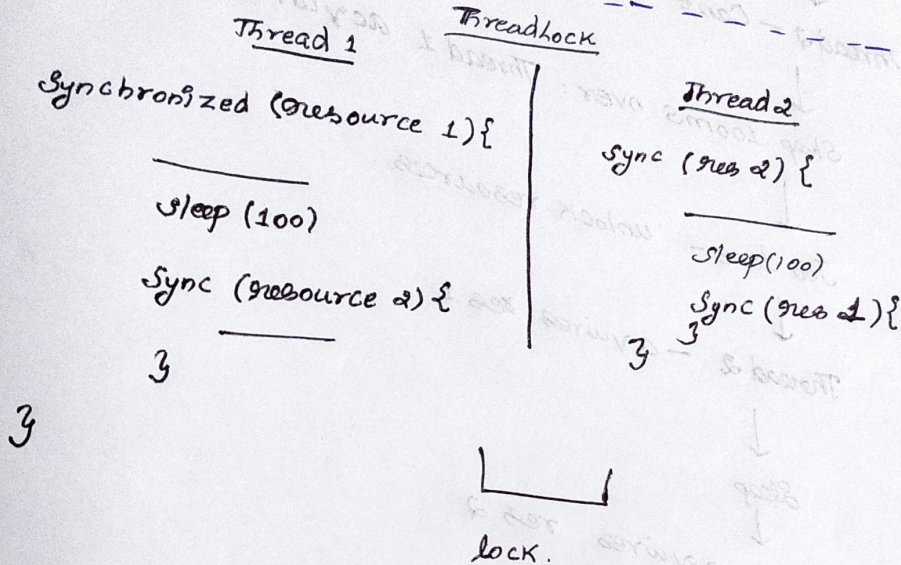 Thread 1
ThreadLock
Synchronized (resource 1){
sleep (100)
Sync (resource 2) {
}
}
Thread 2
Sync (res 2) {
sleep(100)
Sync (res 1){
}
}
lock.